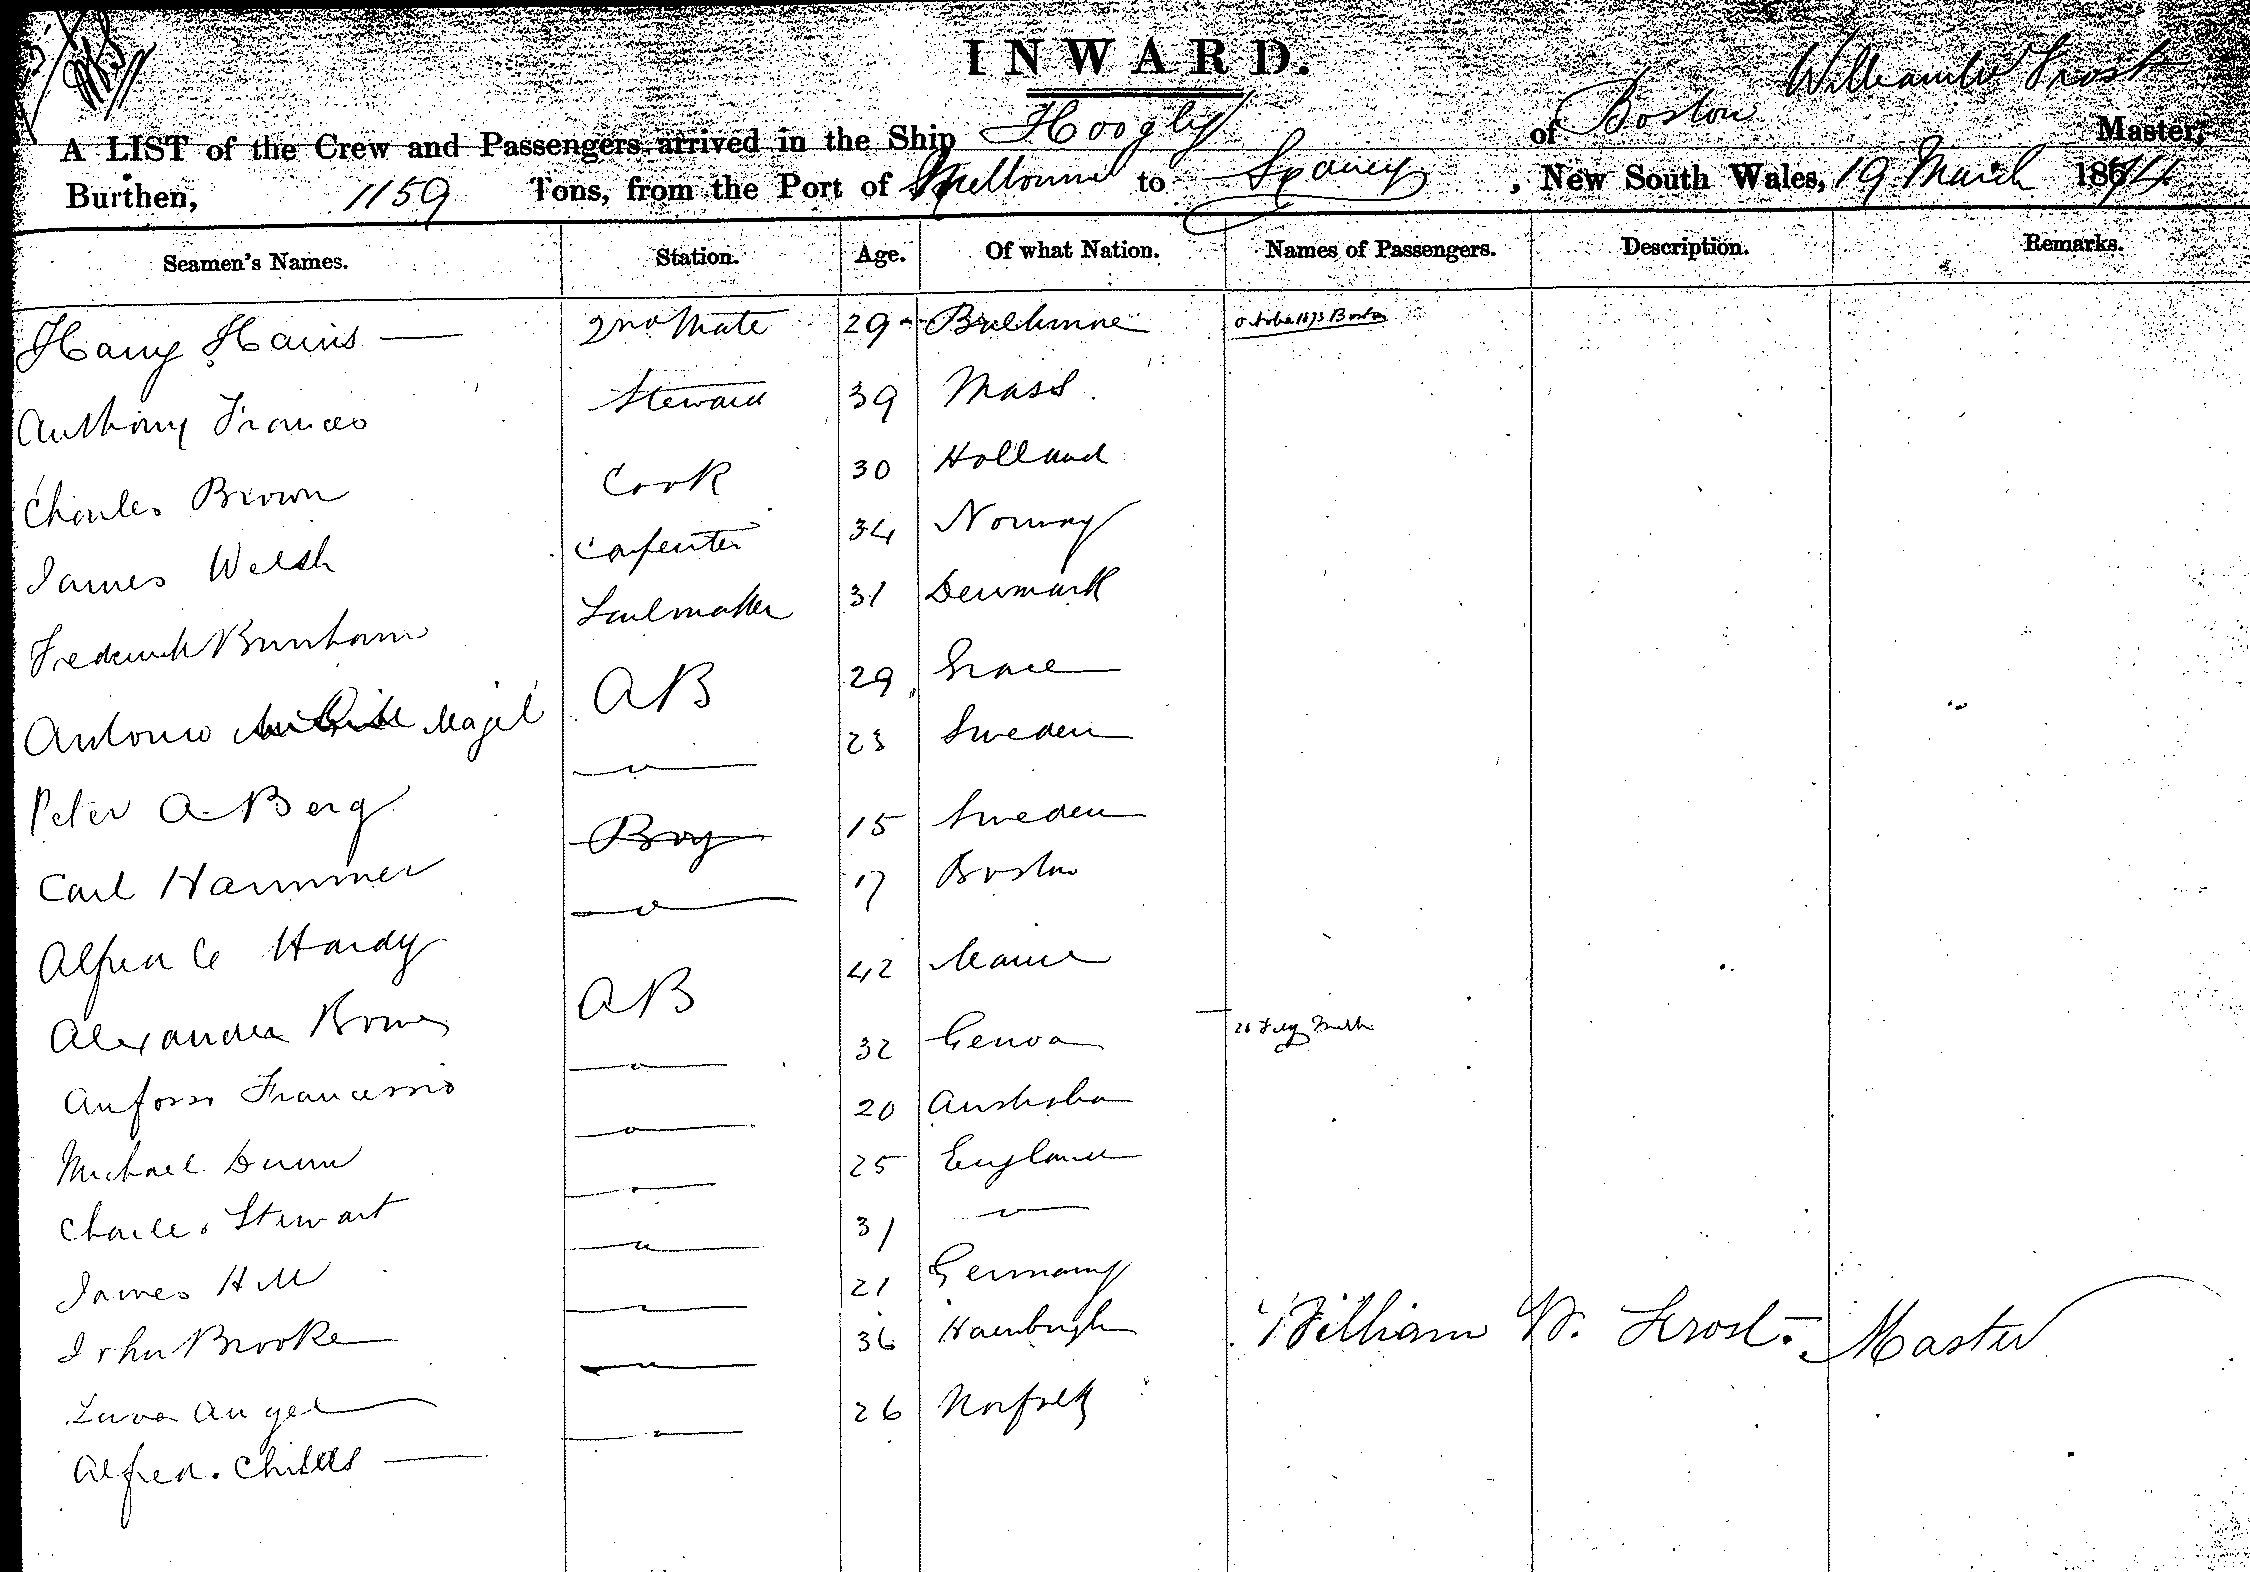 INWARD.
William W Frost
A LIST of the Crew and Passengers arrived in the Ship Hoogly of Boston Master,
Burthen, 1159 Tons, from the Port of Melbourne to Sydney, New South Wales, 19 March 1874
Seamen's Names. Station. Age. Of what Nation. Names of Passengers. Description. Remarks.
Harry Harris 2nd Mate 29 October 1873 Boston
Anthony Frances Steward 39 Mass.
Charles Brown Cook 30 Holland
James Welsh Carpenter 34 Norway
Frederick Burnham Sailmaker 31 Denmark
Antonio AB 29
Peter A. Berg " 23 Sweden
Carl Hammer Boy 15 Sweden
Alfred C Hardy " 17 Boston
Alexander AB 42 Maine
Francessio " 32 Genoa 26
Michael Dunn " 20 Australia
Charles Stewart " 25 England
James Hill " 31 "
John Brooke " 21 Germany
Angel " 36 Hamburgh
Alfred Childs " 26 Norfolk
William W. Frost. Master